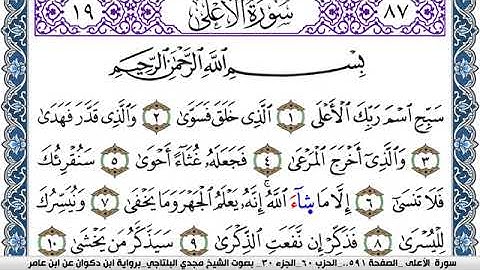 ٨٧ سورة الأعلى ١٩
بِسْمِ اللَّهِ الرَّحْمَٰنِ الرَّحِيمِ
سَبِّحِ اسْمَ رَبِّكَ الْأَعْلَى ١ الَّذِي خَلَقَ فَسَوَّىٰ ٢ وَالَّذِي قَدَّرَ فَهَدَىٰ
٣ وَالَّذِي أَخْرَجَ الْمَرْعَىٰ ٤ فَجَعَلَهُ غُثَاءً أَحْوَىٰ ٥ سَنُقْرِئُكَ
فَلَا تَنسَىٰ ٦ إِلَّا مَا شَاءَ اللَّهُ إِنَّهُ يَعْلَمُ الْجَهْرَ وَمَا يَخْفَىٰ ٧ وَنُيَسِّرُكَ
لِلْيُسْرَىٰ ٨ فَذَكِّرْ إِن نَّفَعَتِ الذِّكْرَىٰ ٩ سَيَذَّكَّرُ مَن يَخْشَىٰ ١٠
سورة الأعلى _الصفحة ٥٩١_ الحزب ٦٠_الجزء ٣٠_ بصوت الشيخ مجدي البلتاجي_برواية ابن ذكوان عن ابن عامر